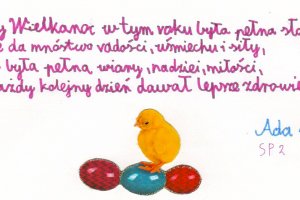 y Wielkanoc w tym roku była pełna sło
e da mnóstwo radości, uśmiechu i siły,
była pełna wiary, nadziei, miłości,
ażdy kolejny dzień dawał lepsze zdrowie
Ada
SP 2